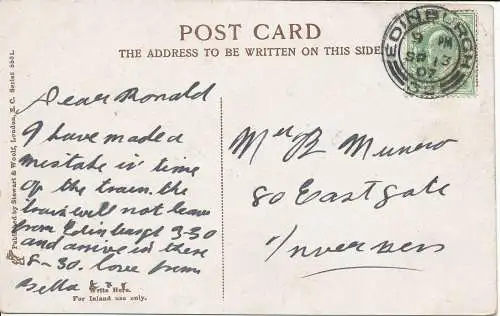 POST CARD
THE ADDRESS TO BE WRITTEN ON THIS SIDE
EDINBURGH
9 PM
SP 13
07
Published by Stewart & Woolf, London, E.C. Series 5531.
Dear Ronald
I have made a
mistake in time
of the train. the
train will not leave
from Edinburgh 3-30
and arrive in there
8-30. love from
Bella
Write Here.
For Inland use only.
Mr R Munro
80 Eastgate
Inverness